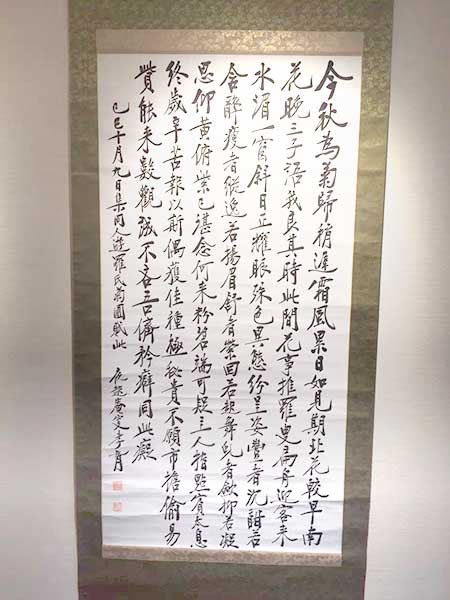 今秋為菊歸稍遲霜風累日如見期北花較早南
花晚三子語我良其時此間花事推羅叟扁舟迎客來
水湄一窗斜日正耀眼殊色異態紛呈姿豐者沉酣若
含醉瘦者縱逸若揚眉舒者縈回若起舞者欹抑若凝
思仰黃俯紫已念何來粉碧端可疑主人指點賓太息
終歲辛苦報以斯偶獲佳種極秘貴不願市擔偷易
貲能來數觀誠不吝吾儕矜癖同此癡
己巳十月九日集同人遊羅氏菊園賦此 夜起庵孝胥